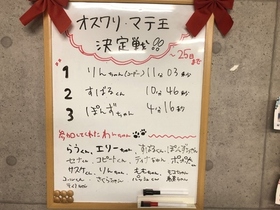 オスワリ・マテ王
決定戦!!
〜25日まで
1 りんちゃん 11分03秒
2 すばるくん 10分46秒
3 ぽんずちゃん 4分16秒
参加してくれたわんちゃん
らうくん、エリーちゃん、すばるくん、ぽんずちゃん
セナくん、コビートくん、ティナちゃん、
サスケくん、りんちゃん、ももちゃん、モコちゃん
さくらちゃん